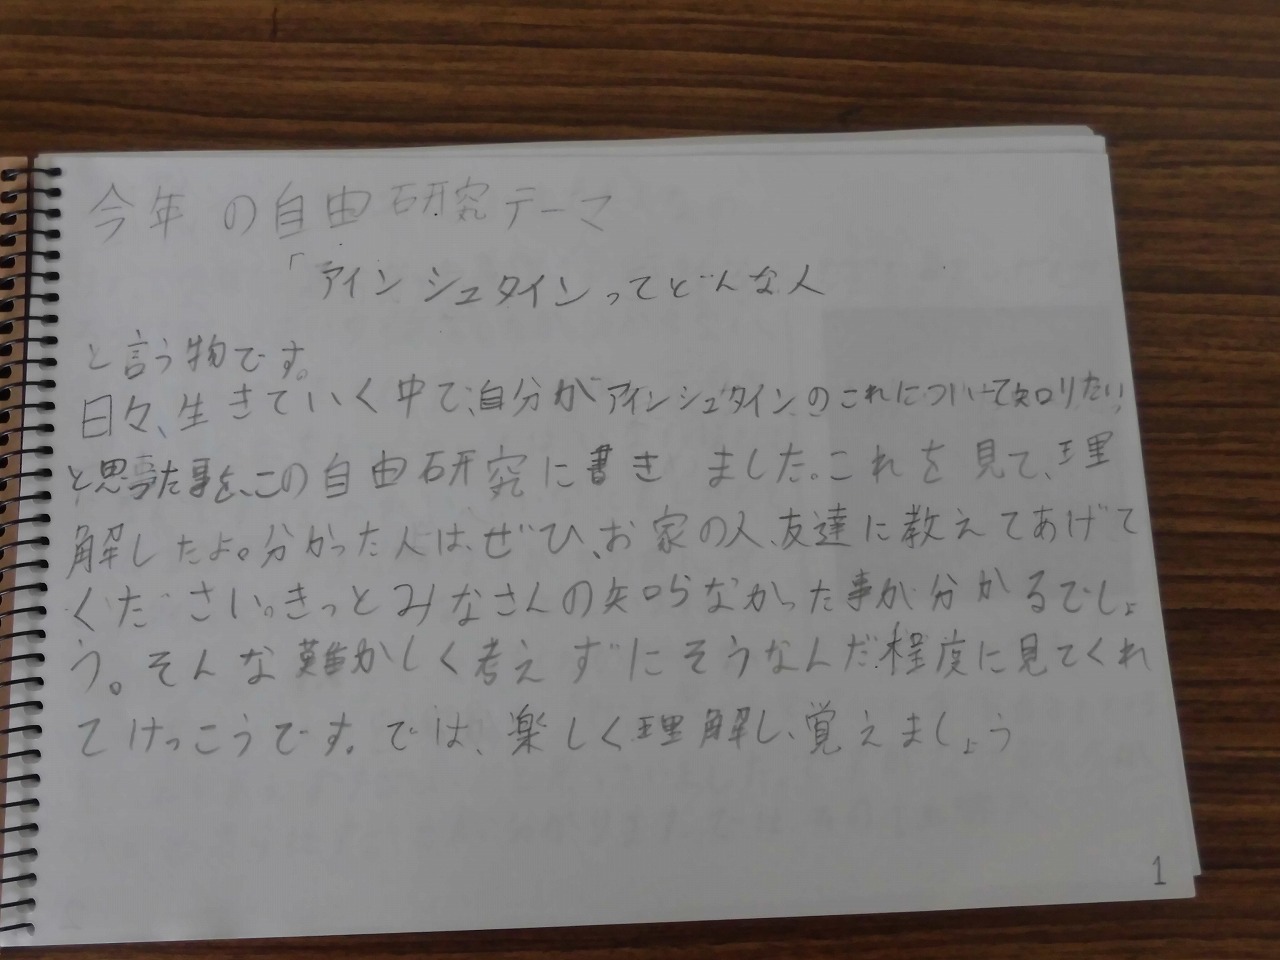 今年の自由研究テーマ
「アインシュタインってどんな人
と言う物です。
日々、生きていく中で、自分がアインシュタインのこれについて知りたい
と思った事を、この自由研究に書きました。これを見て、理
解したよ。分かった人は、ぜひ、お家の人、友達に教えてあげて
ください。きっとみなさんの知らなかった事が分かるでしょ
う。そんな難かしく考えずにそうなんだ程度に見てくれ
てけっこうです。では、楽しく理解し、覚えましょう
1